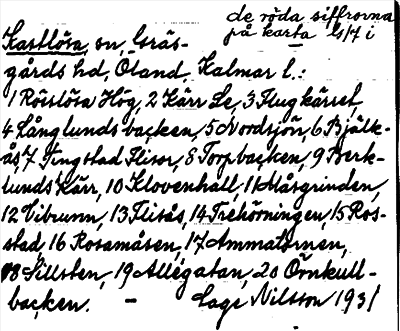 de röda siffrorna
på karta 4/7 i
Kastlösa, sn, Gräs-
gårds hd, Öland, Kalmar l.:
1 Rösslösa Hög, 2 Kärr Le, 3 Flugkärret,
4 Långlundsbacken, 5 Nordsjön, 6 Bjälk-
ås, 7 Tingstad Flisor, 8 Torpbacken, 9 Berk-
lunds Kärr, 10 Klovenhall, 11 Mårgrinden,
12 Vibrunn, 13 Flisås, 14 Trehörningen, 15 Ros-
stad, 16 Rosamåsen, 17 Ammatornen,
18 Sillsten, 19 Allégatan, 20 Örnkull-
backen. – Lage Nilsson 1931